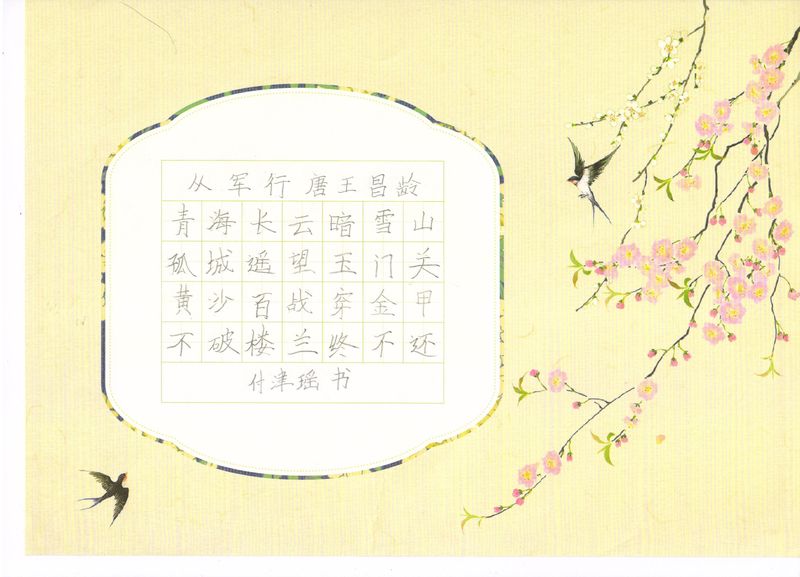 从军行 唐王昌龄
青海长云暗雪山
孤城遥望玉门关
黄沙百战穿金甲
不破楼兰终不还
付津瑶书